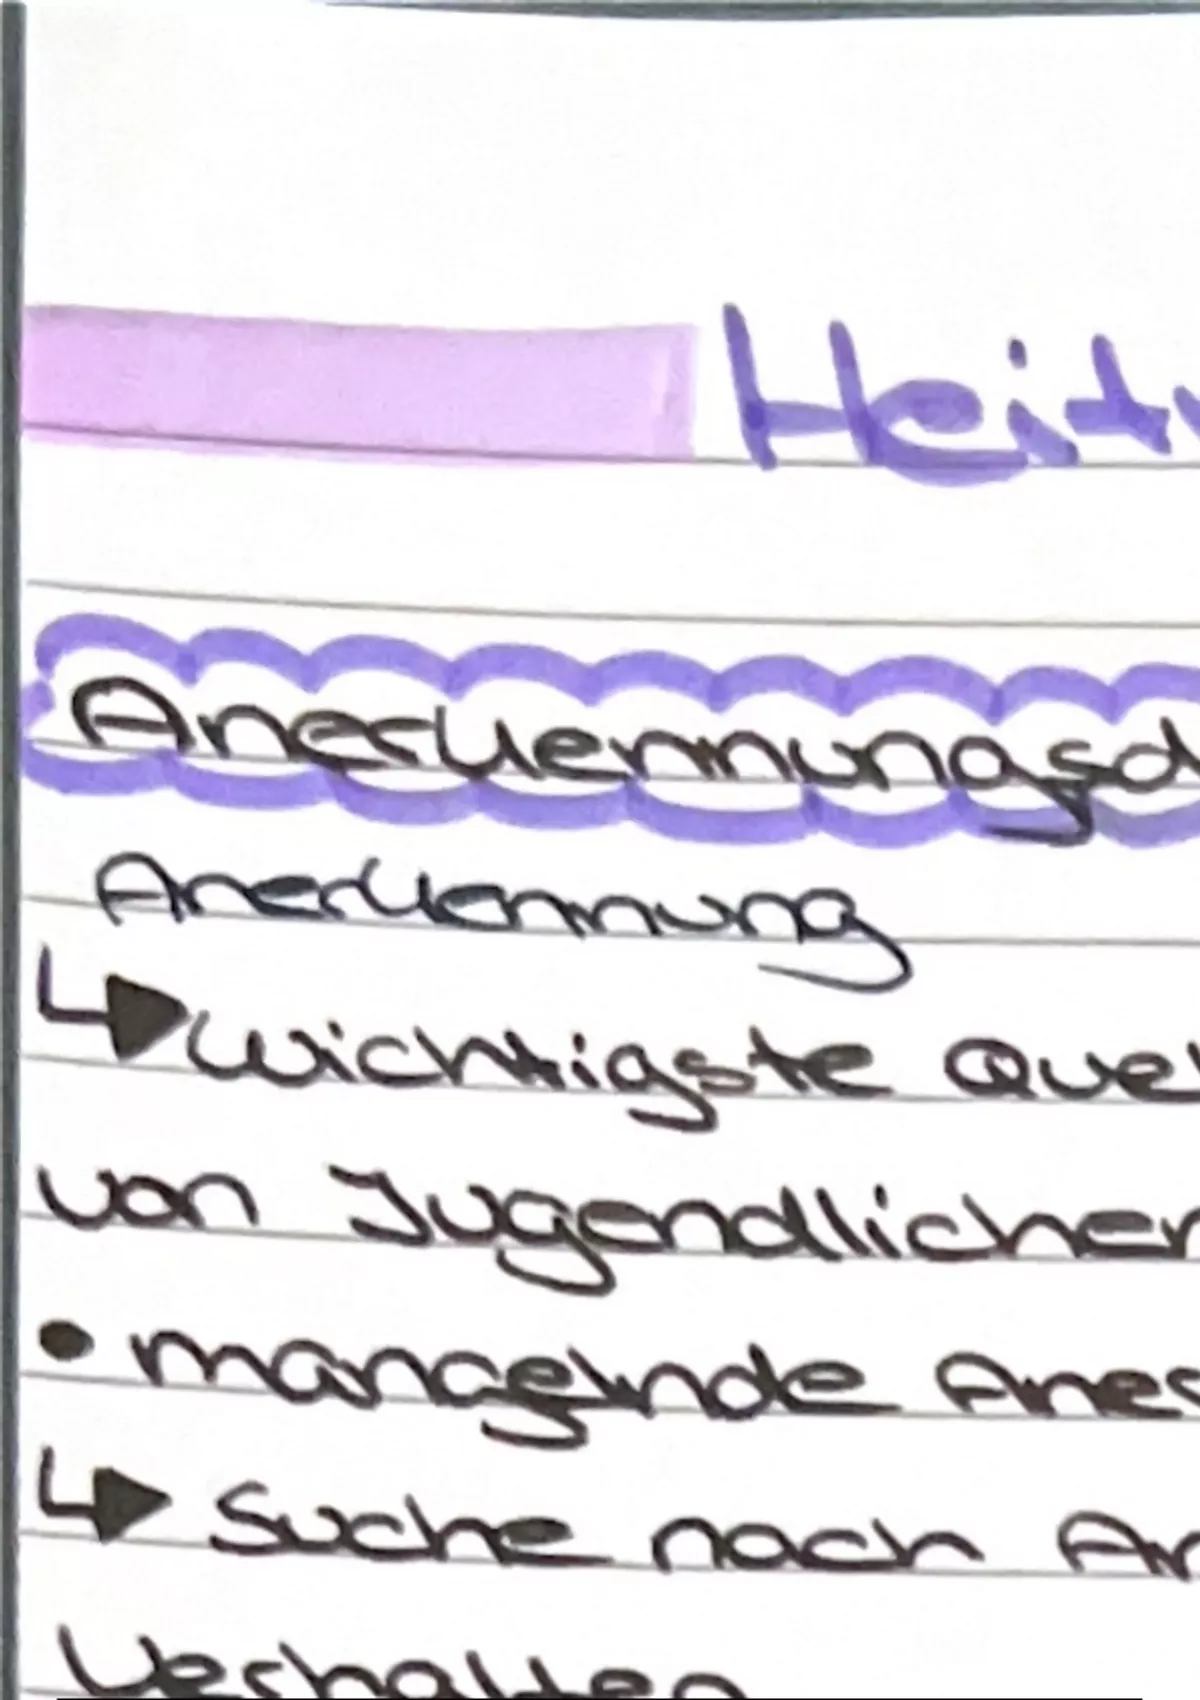 Heit
Anerkennungsd
Anerkennung
↳ wichtigste Quel
von Jugendlichen
• mangelnde Aner
↳ Suche nach An
Verhalten